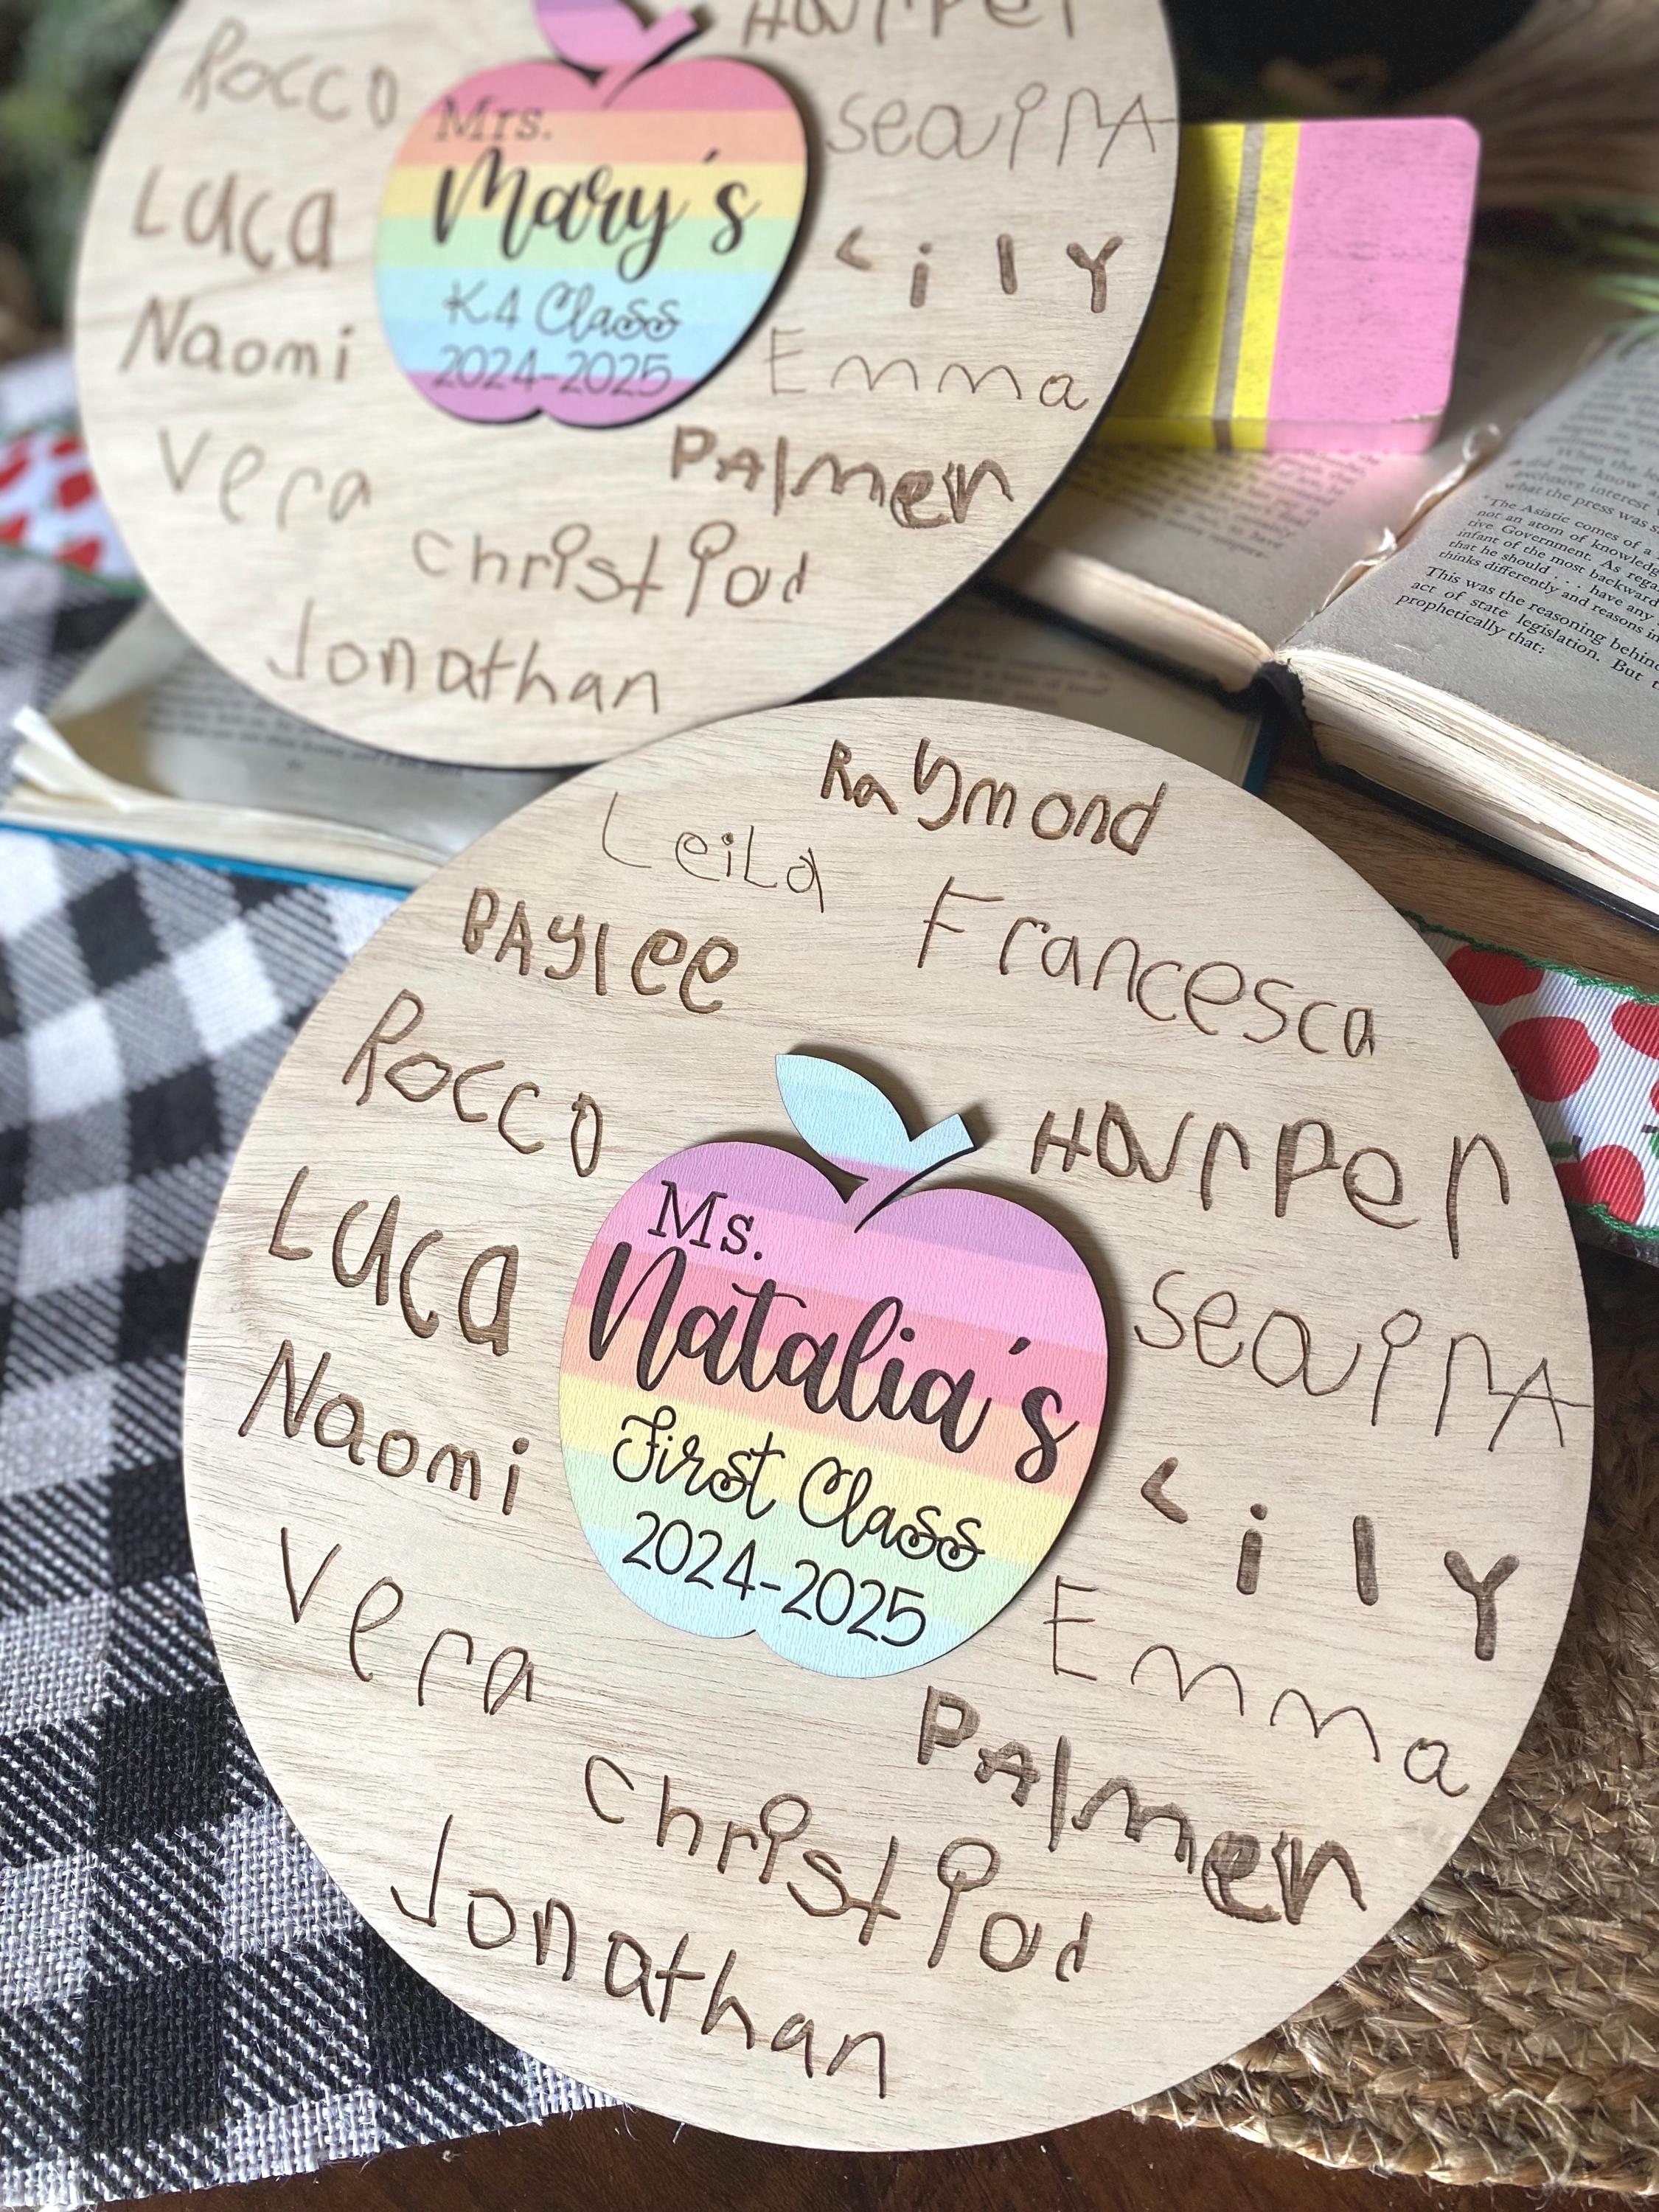 Harper
Rocco
Mrs.
seqinA
Mary's
Luca
Lily
K4 Class
Naomi
2024-2025
Emma
Vera
PAlmer
christian
Jonathan
Raymond
LeiLa
BAYlee
Francesca
Rocco
HarPer
Ms.
Luca
Natalia's
First Class
2024-2025
Naomi
LilY
Emma
Vera
PAlmer
Jonathan
When the
did not know
exclusive interest
what the press was
"The Asiatic comes of a
not an atom of knowledge
tive Government. As rega
infant of the most backward
that he should . . . have any
thinks differently and reasons in
This was the reasoning behin
act of state legislation. But t
prophetically that: